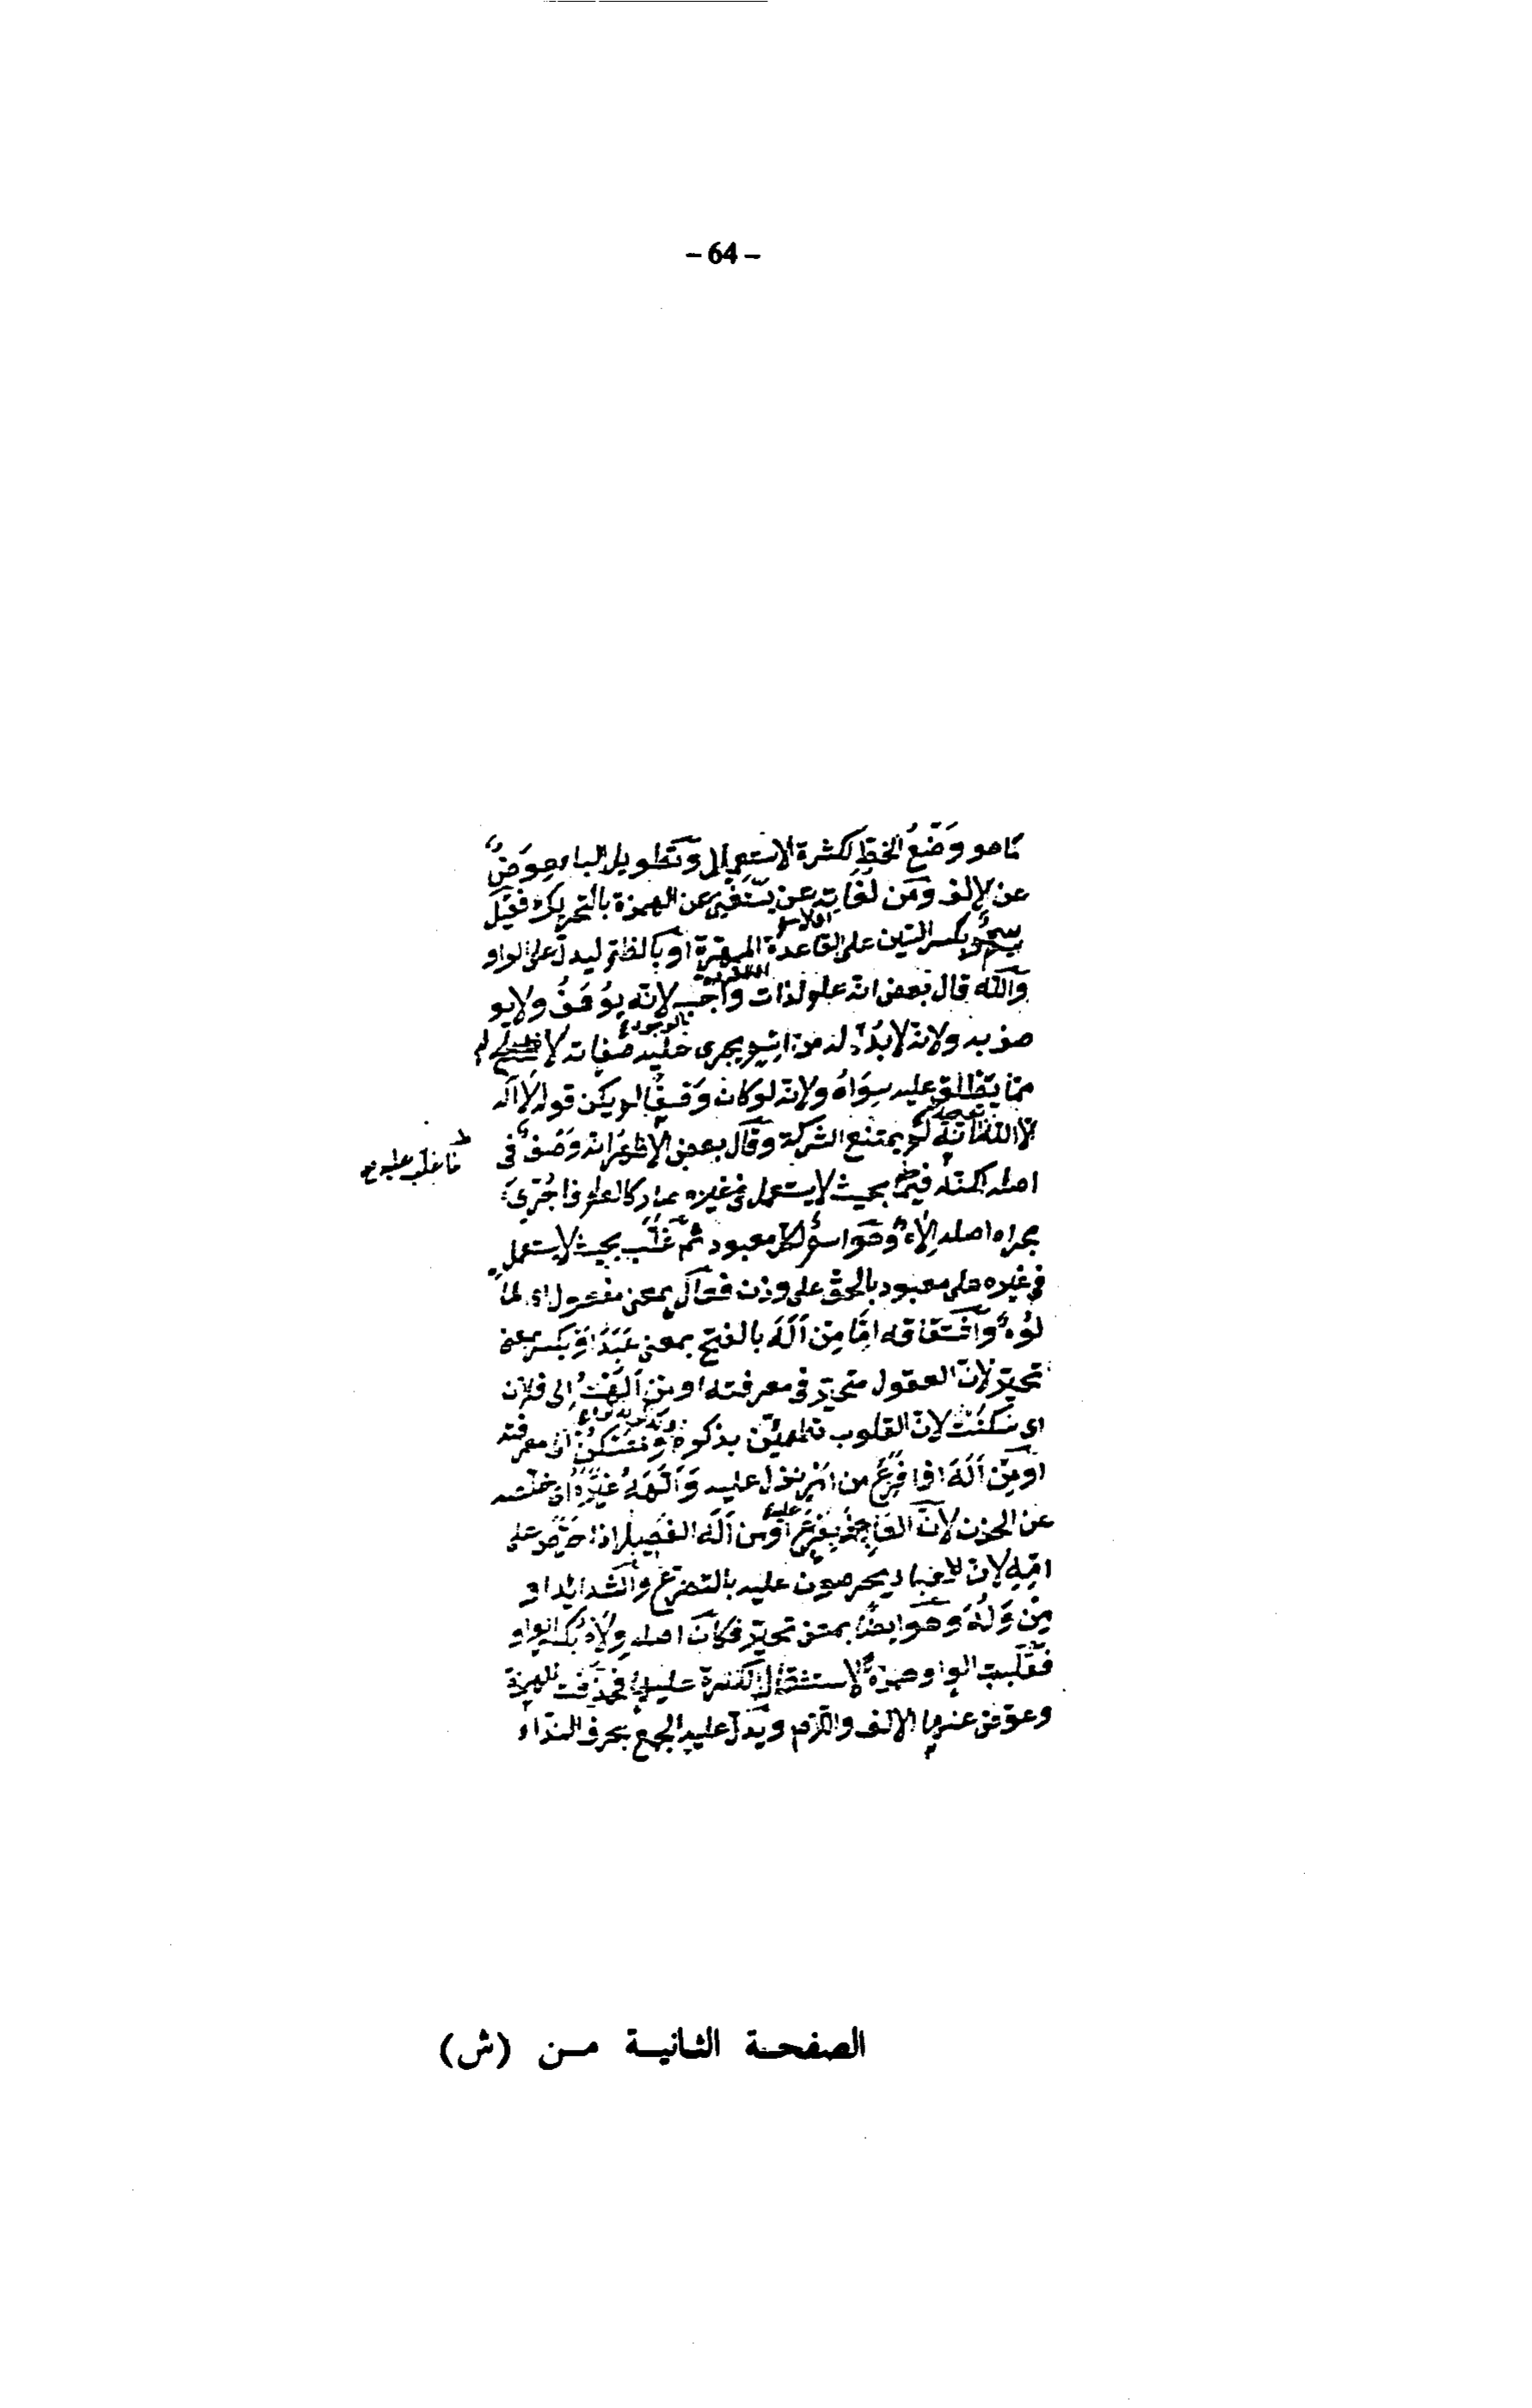 - 64 -
كما هو وَضْعُ الخط لكثرة الاستعمال وتطويل البا عِوَضٌ
عن الالف ومن لغاته عن يستغنى عن الهمزة بالتحريك فقيل
بكسر السين على القاعدة او بالضم ليدل على الواو
والله قال بعض انه علم لذات واجب لانه يوصف ولا يو
صف به ولانه لا بُدّ له من اسم يجرى عليه صفاته لا
مما يطلق عليه سِوَاهُ ولانه لو كان وَصفًا لم يكن قوله لا اله
الا الله لم يمتنع الشركة وقال بعض الاظهر انه وَصْفٌ في
لما غلب عليه
اصله لكنه بحيث لا يستعمل في غيره صار كالعلم فاجرى
مجراه اصله إلاهٌ وهو اسمٌ لكل معبود ثم غُلّب بحيث لا يستعمل
في غيره على معبود بالحق على وزن فعال بمعنى مفعول اى مأ
لُوهٌ واشتقاقه امّا مِن اَلَهَ بالفتح بمعنى عَبَدَ او بكسر بمعنى
تحيّر لانّ العقول متحيّر في معرفته او من اَلِهْتُ إلى فلان
اى سَكَنْتُ لانّ القلوب تطمئن بذكره وتسكن الى معرفته
او مِن اَلَهَ اذا فَزِعَ من امرٍ نزل عليه وَآلَهَهُ غَيْرُهُ اى خلّصه
عن الحزن لانّ يفزع او من اَلَهَ الفصيل اذا حرص على
امّهِ لان العباد يحرصون عليه بالتضرع والشدايد او
مِن وَلَهَ وهو ايضًا بمعنى تحيّر فكان اصله وِلَاهٌ بكسر الواو
فقلبت الواو همزة لاستثقال الكسرة عليها فحذفت الهمزة
وعوّض عنها الالف واللام ويدل عليه الجمع بحرف النداء
الصفحة الثانية من (ش)